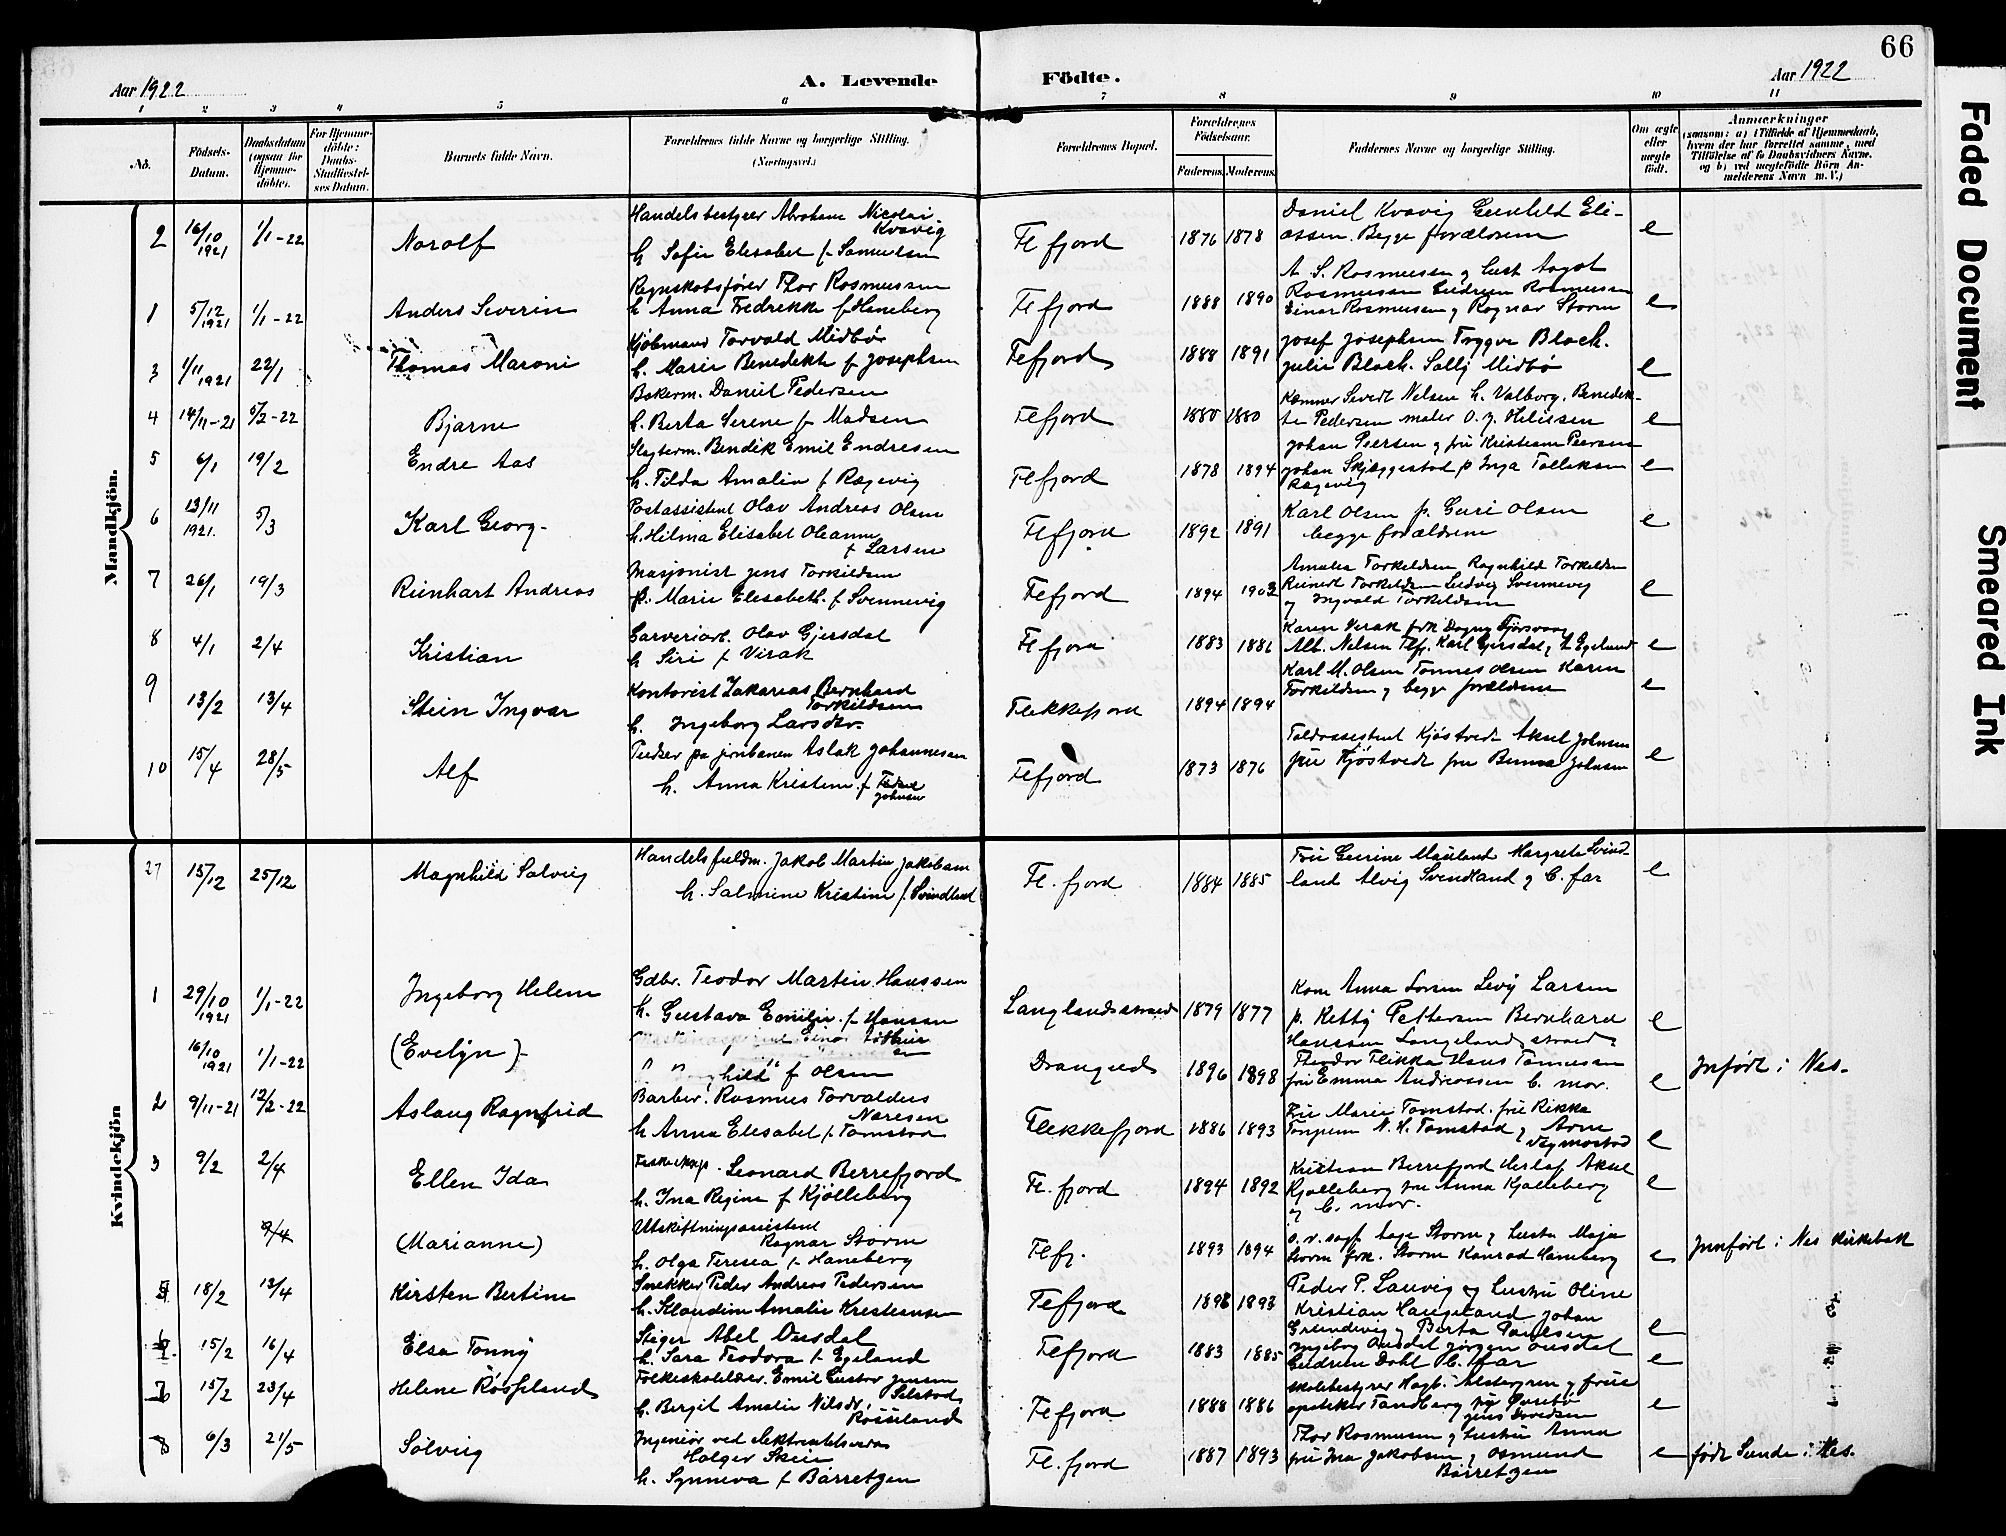 66
Aar 1922
A. Levende Födte.
Aar 1922
1 2 3 4 5 6 7 8 9 10 11
No.
Födsels-Datum.
Daabsdatum (ogsaa for Hjemmedöbte).
For Hjemmedöbte: Daabs-Stadfæstelses Datum.
Barnets fulde Navn.
Forældrenes fulde Navne og borgerlige Stilling. (Næringsvei.)
Forældrenes Bopæl.
Forældrenes Födselsaar.
Faderens. Moderens.
Faddernes Navne og borgerlige Stilling.
Om ægte eller uægte födt.
Anmærkninger (saasom: a) i Tilfælde af Hjemmedaab, hvem der har forrettet samme, med Tilföielse af to Daabsvidners Navne, og b) ved uægtefödte Börn Anmelderens Navn m. V.)
Mandkjön.
2 16/10 1921 1/1-22 Norolf
Handelsbestyrer Abraham Nicolai Kvavig
h. Sofie Elisabet f. Samuelsen
Flfjord 1876 1878
Daniel Kvavig Gunhild Eliassen. Begge forældrene e
1 5/12 1921 1/1-22 Anders Severin
Regnskabsfører Thor Rasmussen
h. Anna Fredrekke f. Haneberg
Flfjord 1888 1890
A. S. Rasmussen g Aagot
Rasmussen Gudrun Rasmussen
Einar Rasmussen g Ragnar Storm e
3 1/11 1921 22/1 Thomas Maroni
Kjøbmand Torvald Midbø
h. Marie Benedekte f Josephsen
Flefjord 1888 1891
Josef Josephsen Trygve Bloch.
Julie Bloch. Sally Midbø e
4 14/11-21 5/2-22 Bjarne
Bakerm. Daniel Pedersen
h. Berta Serene f Madsen
Flefjord 1880 1880
Sevedt Nelsen h. Valborg. Benedekte Pedersen maler e
5 6/1 19/2 Endre Aas
Slagterm. Bendik Emil Endresen
h. Tilda Amalia f Ragevig
Flefjord 1878 1894
Johan Peersen g fru Kristiane Peersen
Johan Skjæggestad p Inga Tolleksen
Ragevig e
6 13/11 1921. 5/3 Karl Georg-
Postassistent Olav Andreas Olsen
h. Hilma Elisabet Oleanne f Larsen
Flefjord 1892 1891
Karl Olsen p. Guri Olsen
begge forældrene e
7 26/1 19/3 Reinhart Andreas
Masjonist Jens Torkildsen
h. Marie Elesabeth. f Svennevig
Flefjord 1894 1903
Amalia Torkeldsen Ragnhild Torkeldsen
Reinert Torkeldsen Ludvig Svennevig
og Ingvald Torkeldsen e
8 4/1 2/4 Kristian
Garveriarb. Olav Gjersdal
h Siri f Virak
Flfjord 1883 1886
Karen Virak frk Dagny
Alb. Nelsen Flfj. Karl Gjersdal, Egeland e
9 13/2 13/4 Stein Ingvar
Kontorist Zakarias Bernhard Torkildsen
h. Ingeborg Larsdtr.
Flekkefjord 1894 1894
Karl M. Olsen Tonnes Olsen Karen
Torkildsen g begge forældrene e
10 15/4 28/5 Alf
på jernbanen Aslak Johannessen
h. Anna Kristine f Johnsen
Flefjord 1873 1876
Toldassistent Kjøstvedt Aksel Johnsen
fru Kjøstvedt fru Johnsen e
Kvindekjön
27 15/12 25/12 Magnhild Solveig
Handelsfuldm. Jakob Martin Jakobsen
h. Salmine Kristine f. Svindland
Fl. fjord 1884 1885
Fru Gurine Mauland Margrete Svindland Alvig Svendland g B. far e
1 29/10 1921 1/1-22 Ingeborg Helene
Gdbr. Teodor Martin Hanssen
h. Gustava Emilie f Hansen
Langlandsstrand 1879 1877
Kone Anna Larsen Levy Larsen
p. Ketty Pettersen Bernhard
Hanssen Langelandsstrand e
16/10 1921 1/1-22 (Evelyn)-
f Olsen
Drangeid 1896 1898
Theodor Flikka Hans Tonnessen
fru Emma Andreassen b. mor. e
Inført i Nes.
2 9/11-21 12/2-22 Aslaug Ragnfrid
Barber. Rasmus Torvalders Naresen
h Anna Elesabet f. Tamstad
Flekkefjord 1886 1893
Fru Marie Tomstad. fru Rikka
N. H. Tomstad g Arne e
3 9/2 2/4 Ellen Ida
Leonard Berrefjord
h. Ina Regine f Kjølleberg
Fl. fjord 1894 1892
Kristian Berrefjord Herlof Aksel
Kjølleberg fru Anna Kjølleberg
og b. mor. e
9/4 (Marianne)
Utskiftningsassistent Ragnar Storm
h. Olga Teresea f. Haneberg
Flfj. 1893 1894
o. r. sagf. Aage Storm g Maja
Storm frk. Storm Konrad Haneberg e
Innført i Nes kirkebok
5 18/2 13/4 Kirsten Bertine
Snekker Peder Andreas Pedersen
h. Klaudine Amalie Kristiansen
Flefjord 1893
Peder P. Lauvig og Oline
Kristian Haugeland Johan
Grundevig g Berta Paulsen e
6 15/2 16/4 Elsa Tonny
Stiger Abel Ousdal
h. Sara Teodora f. Egeland
Flefjord 1883 1885
Ingeborg Ousdal Jørgen Ousdal
Gudrun Dahl b. far e
7 15/2 23/4 Helene Røsseland
Folkeskolelær. Emil Gustav Jensen Selstad
h. Bergit Amalie Nilsdr. Røsseland
Flefjord 1888 1886
Skolebestyrer g frue
apoteker Tandberg e
8 6/3 21/5 Solveig
Ingeniør ved elektrisitetsverk
Holger Skeie
h. Synneva f Barretzen
Fl. fjord 1887 1893
Thor Rasmussen g Anna
fru Ina Jakobsen g Osmund
Barretzen e
født Sunde i Nes.
Faded Document
Smeared Ink